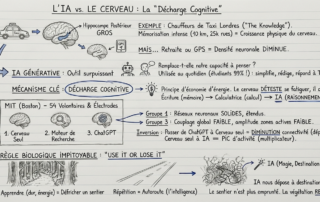 L'IA vs. LE CERVEAU : La "Décharge Cognitive"
Hippocampe Postérieur
GROS
EXEMPLE : Chauffeurs de Taxi Londres ("The Knowledge").
Mémorisation intense (10 km, 25k rues) = Croissance physique du cerveau.
MAIS... Retraite ou GPS = Densité neuronale DIMINUE.
IA GÉNÉRATIVE : Outil surpuissant
Remplace-t-elle notre capacité à penser ?
Utilisée au quotidien (étudiants 99% !) : simplifie, rédige, répond à
MÉCANISME CLÉ
DÉCHARGE COGNITIVE
Principe d'économie d'énergie. Le cerveau DÉTESTE se fatiguer, il
Écriture (mémoire) → Calculatrice (calcul) → IA (RAISONNEMENT
MIT (Boston) - 54 Volontaires & Électrodes
1. Cerveau
Seul
2. Moteur de
Recherche
3. ChatGPT
Groupe 1 : Réseaux neuronaux SOLIDES, étendus.
Groupe 3 : Couplage global FAIBLE, amplitude zones actives FAIBLE.
Inversion : Passer de ChatGPT à Cerveau seul = DIMINUTION connectivité
Cerveau seul à IA = PIC d'activité (multiplicateur).
RÈGLE BIOLOGIQUE IMPITOYABLE : "USE IT OR LOSE IT"
IA (Magie, Destination
Apprendre (dur, énergie) = Défricher un sentier
Répétition = Autoroute (l'intelligence)
IA nous dépose à destination
Le sentier n'est plus emprunté. La végétation